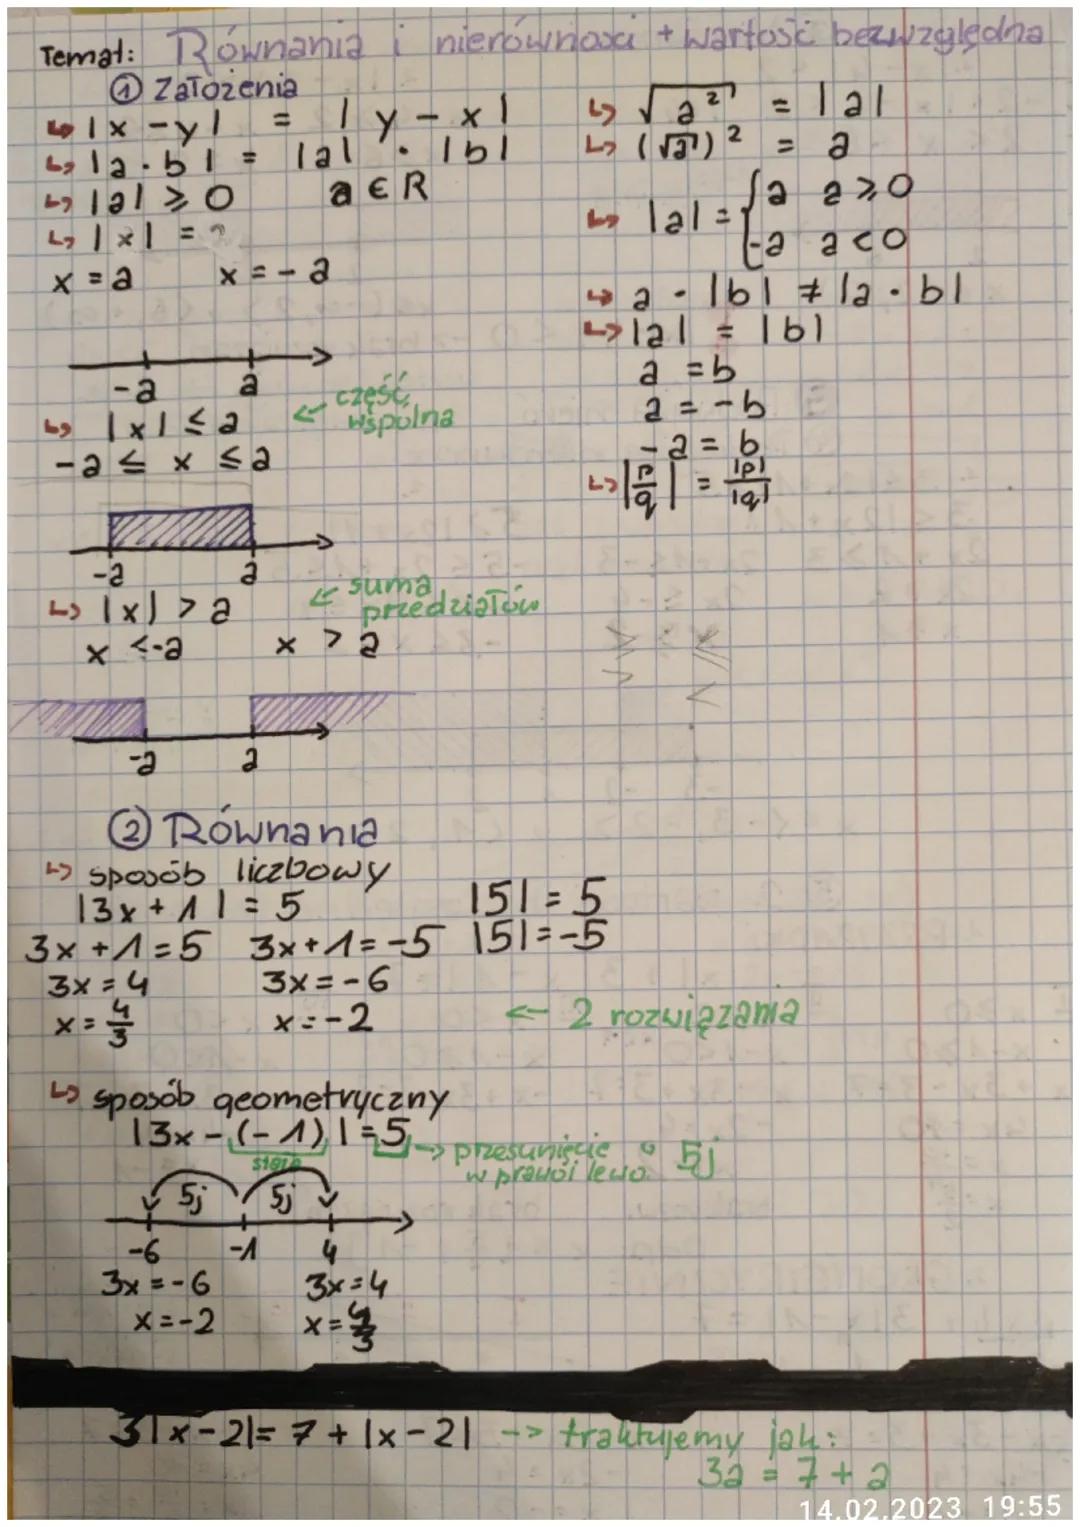 Temat: Równania i nierówności + wartość bezwzględna
① Założenia
↳ |x - y| = |y - x|
↳ |a · b| = |a| · |b|
↳ |a| ⩾ 0 a ∈ R
↳ |x| =
x = a x = - a
-a a
↳ |x| ≤ a
← część wspólna
-a ≤ x ≤ a
-a a
↳ |x| > a
← suma przedziałów
x <-a x > a
-a a
↳ √a² = |a|
↳ (√a)² = a
↳ |a| = { a a ⩾ 0
-a a < 0
↳ a · |b| ≠ |a · b|
↳ |a| = |b|
a = b
a = -b
-a = b
↳ |p/q| = |p|/|q|
② Równania
↳ sposób liczbowy
|3x + 1| = 5 |5| = 5
3x + 1 = 5 3x + 1 = -5 |5| = -5
3x = 4 3x = -6
x = 4/3 x = -2 ← 2 rozwiązania
↳ sposób geometryczny
|3x - (-1)| = 5 → przesunięcie o 5j
w prawo i lewo
stała
5j 5j
-6 -1 4
3x = -6 3x = 4
x = -2 x = 4/3
3|x-2| = 7 + |x-2| --> traktujemy jak:
3a = 7 + a
14.02.2023 19:55